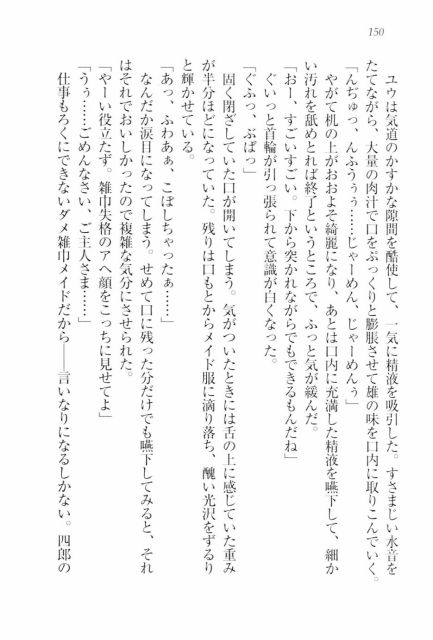 150
ユウは気道のかすかな隙間を酷使して、一気に精液を吸引した。すさまじい水音を
たてながら、大量の肉汁で口をぷっくりと膨脹させて雄の味を口内に取りこんでいく。
「んぢゅっ、んふうぅぅ……じゃーめん、じゃーめんぅ」
やがて机の上がおおよそ綺麗になり、あとは口内に充満した精液を嚥下して、細か
い汚れを舐めとれば終了というところで、ふっと気が緩んだ。
「おー、すごいすごい。下から突かれながらでもできるもんだね」
ぐいっと首輪が引っ張られて意識が白くなった。
「ぐふっ、ぶぱっ」
固く閉ざしていた口が開いてしまう。気がついたときには舌の上に感じていた重み
が半分ほどになっていた。残りは口もとからメイド服に滴り落ち、醜い光沢をずるり
と輝かせている。
「あっ、ふわあぁ、こぼしちゃったぁ……」
なんだか涙目になってしまう。せめて口に残った分だけでも嚥下してみると、それ
はそれでおいしかったので複雑な気分にさせられた。
「やーい役立たず。雑巾失格のアヘ顔をこっちに見せてよ」
「うぅ……ごめんなさい、ご主人さま……」
仕事もろくにできないダメ雑巾メイドだから――言いなりになるしかない。四郎の